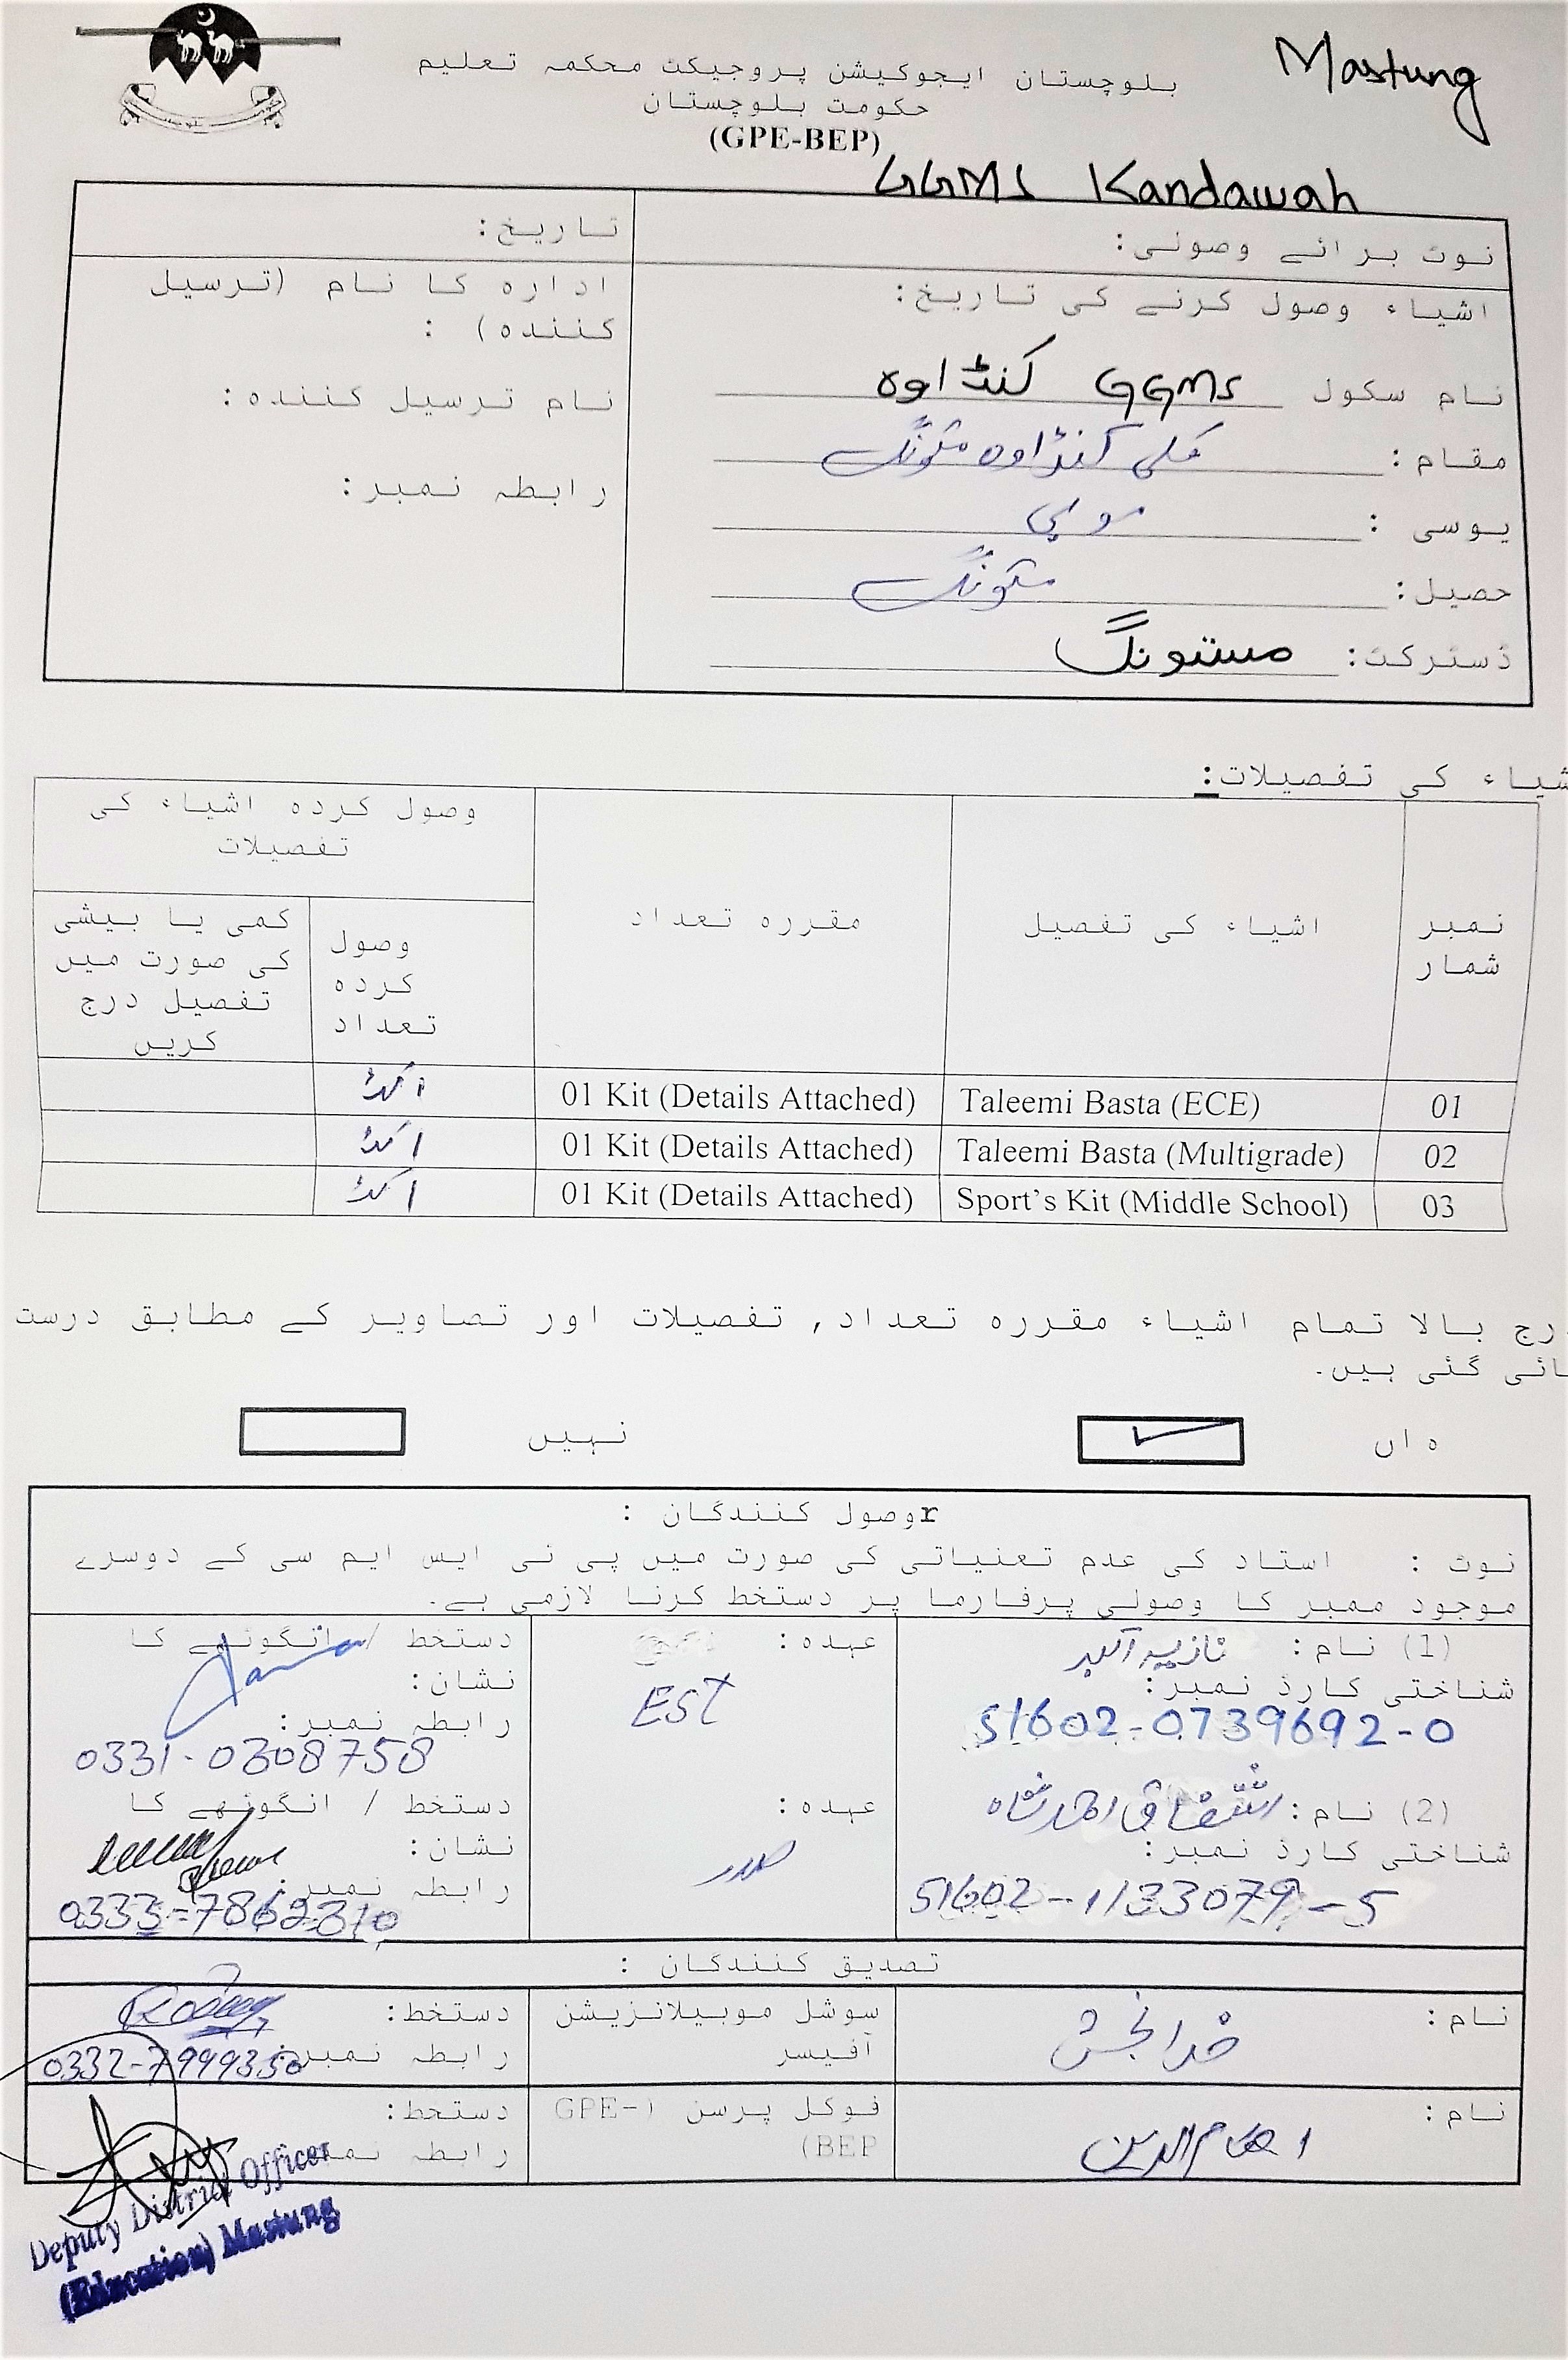 Mastung
بلوچستان ایجوکیشن پروجیکٹ محکمہ تعلیم
حکومت بلوچستان
(GPE-BEP)
GGMS Kandawah
نوٹ برائے وصولی:
تاریخ:
اشیاء وصول کرنے کی تاریخ:
ادارہ کا نام (ترسیل
کنندہ) :
نام سکول GGMS کنڈاوہ
نام ترسیل کنندہ:
مقام: کلی کنڈاوہ مستونگ
رابطہ نمبر:
یوسی :
حصیل: مستونگ
ڈسٹرکٹ: مستونگ
شیاء کی تفصیلات:
نمبر شمار
اشیاء کی تفصیل
مقررہ تعداد
وصول کردہ اشیاء کی تفصیلات
وصول کردہ تعداد
کمی یا بیشی کی صورت میں تفصیل درج کریں
01 Taleemi Basta (ECE) 01 Kit (Details Attached) 1 کٹ
02 Taleemi Basta (Multigrade) 01 Kit (Details Attached) 1 کٹ
03 Sport's Kit (Middle School) 01 Kit (Details Attached) 1 کٹ
رج بالا تمام اشیاء مقررہ تعداد, تفصیلات اور تصاویر کے مطابق درست
ائی گئی ہیں۔
ہاں ✓ نہیں
rوصول کنندگان :
نوٹ : استاد کی عدم تعنیاتی کی صورت میں پی ٹی ایس ایم سی کے دوسرے
موجود ممبر کا وصولی پرفارما پر دستخط کرنا لازمی ہے۔
(1) نام: نازیہ اکبر
شناختی کارڈ نمبر:
51602-0739692-0
عہدہ:
EST
دستخط / انگوٹھے کا
نشان:
رابطہ نمبر:
0331-0308758
(2) نام: اشفاق احمد شاہ
شناختی کارڈ نمبر:
51602-1133079-5
عہدہ:
صدر
دستخط / انگوٹھے کا
نشان:
رابطہ نمبر:
0333-7862310
تصدیق کنندگان :
نام: خدا بخش
سوشل موبیلائزیشن
آفیسر
دستخط:
رابطہ نمبر: 0332-7999350
نام:
فوکل پرسن (GPE-
BEP)
دستخط:
رابطہ نمبر
Deputy District Officer
(Education) Mastung